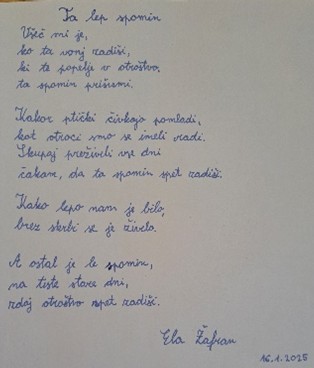 Ta lep spomin
Všeč mi je,
ko ta vonj zadiši,
ki te popelje v otroštvo,
ta spomin prikrasni.
Kakor ptički čivkajo pomladi,
kot otroci smo se imeli radi.
Skupaj preživeli vse dni
čakam, da ta spomin spet zadiši.
Kako lepo nam je bilo,
brez skrbi se je živelo.
A ostal je le spomin,
na tiste stare dni,
zdaj otroštvo spet zadiši.
Ela Žafran
16.1.2025